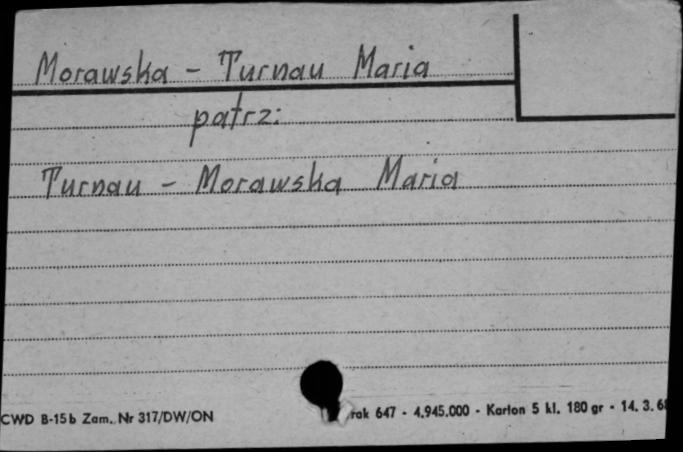 Morawska - Turnau Maria
patrz:
Turnau - Morawska Maria
CWD B-15b Zam. Nr 317/DW/ON rak 647 - 4.945.000 - Karton 5 kl. 180 gr - 14. 3. 68